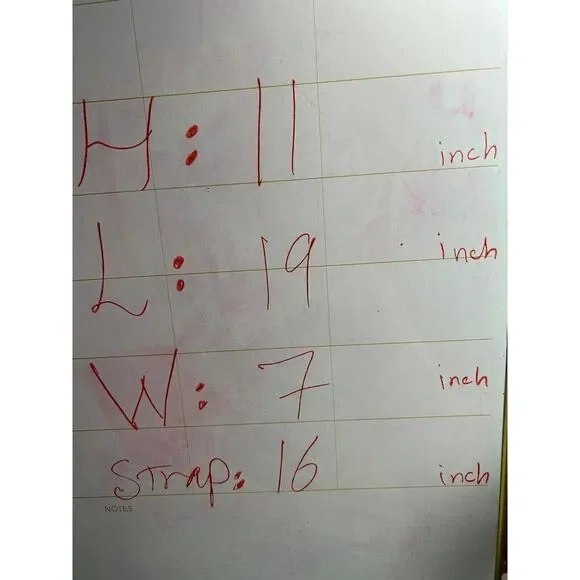 H: 11 inch
L: 19 inch
W: 7 inch
Strap: 16 inch
NOTES